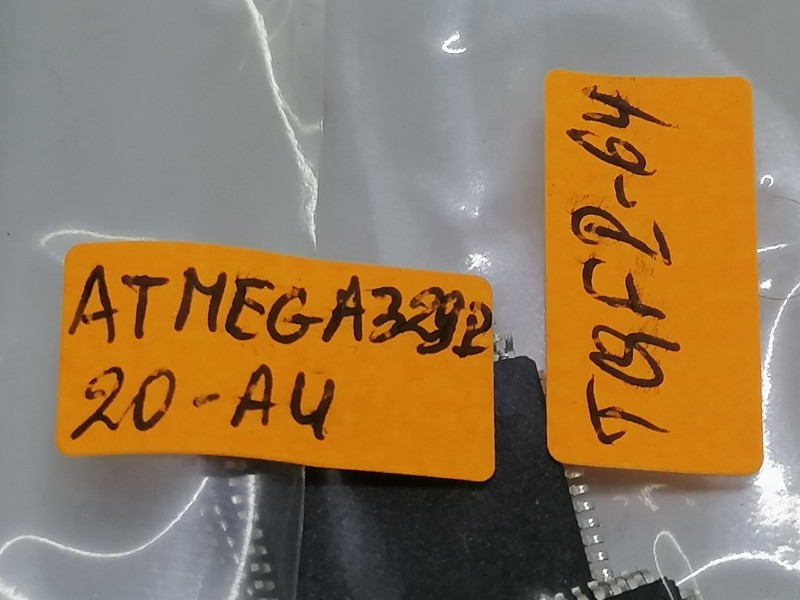 ATMEGA329P
20-AU
TQFP-64